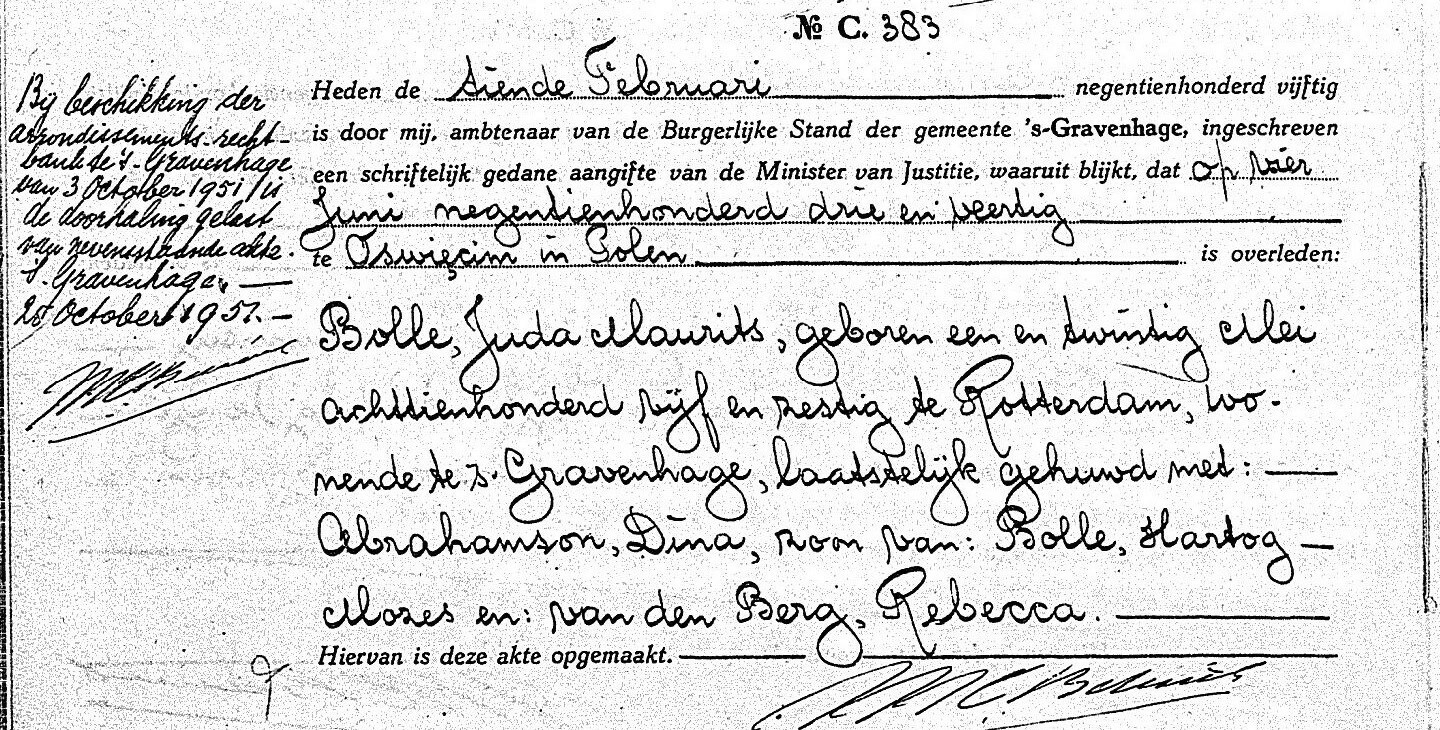 № C. 383
Bij beschikking der
arrondissements-recht-
bank te 's-Gravenhage
van 3 October 1951 is
de doorhaling gelast
van nevenstaande akte.
's-Gravenhage,
25 October 1951.
Heden de tiende Februari negentienhonderd vijftig
is door mij, ambtenaar van de Burgerlijke Stand der gemeente 's-Gravenhage, ingeschreven
een schriftelijk gedane aangifte van de Minister van Justitie, waaruit blijkt, dat op vier
Juni negentienhonderd drie en veertig
te Oswięcim in Polen is overleden:
Bolle, Juda Maurits, geboren een en twintig Mei
achttienhonderd vijf en zestig te Rotterdam, wo-
nende te 's-Gravenhage, laatstelijk gehuwd met:
Abrahamson, Dina, zoon van: Bolle, Hartog
Mozes en: van den Berg, Rebecca.
Hiervan is deze akte opgemaakt.